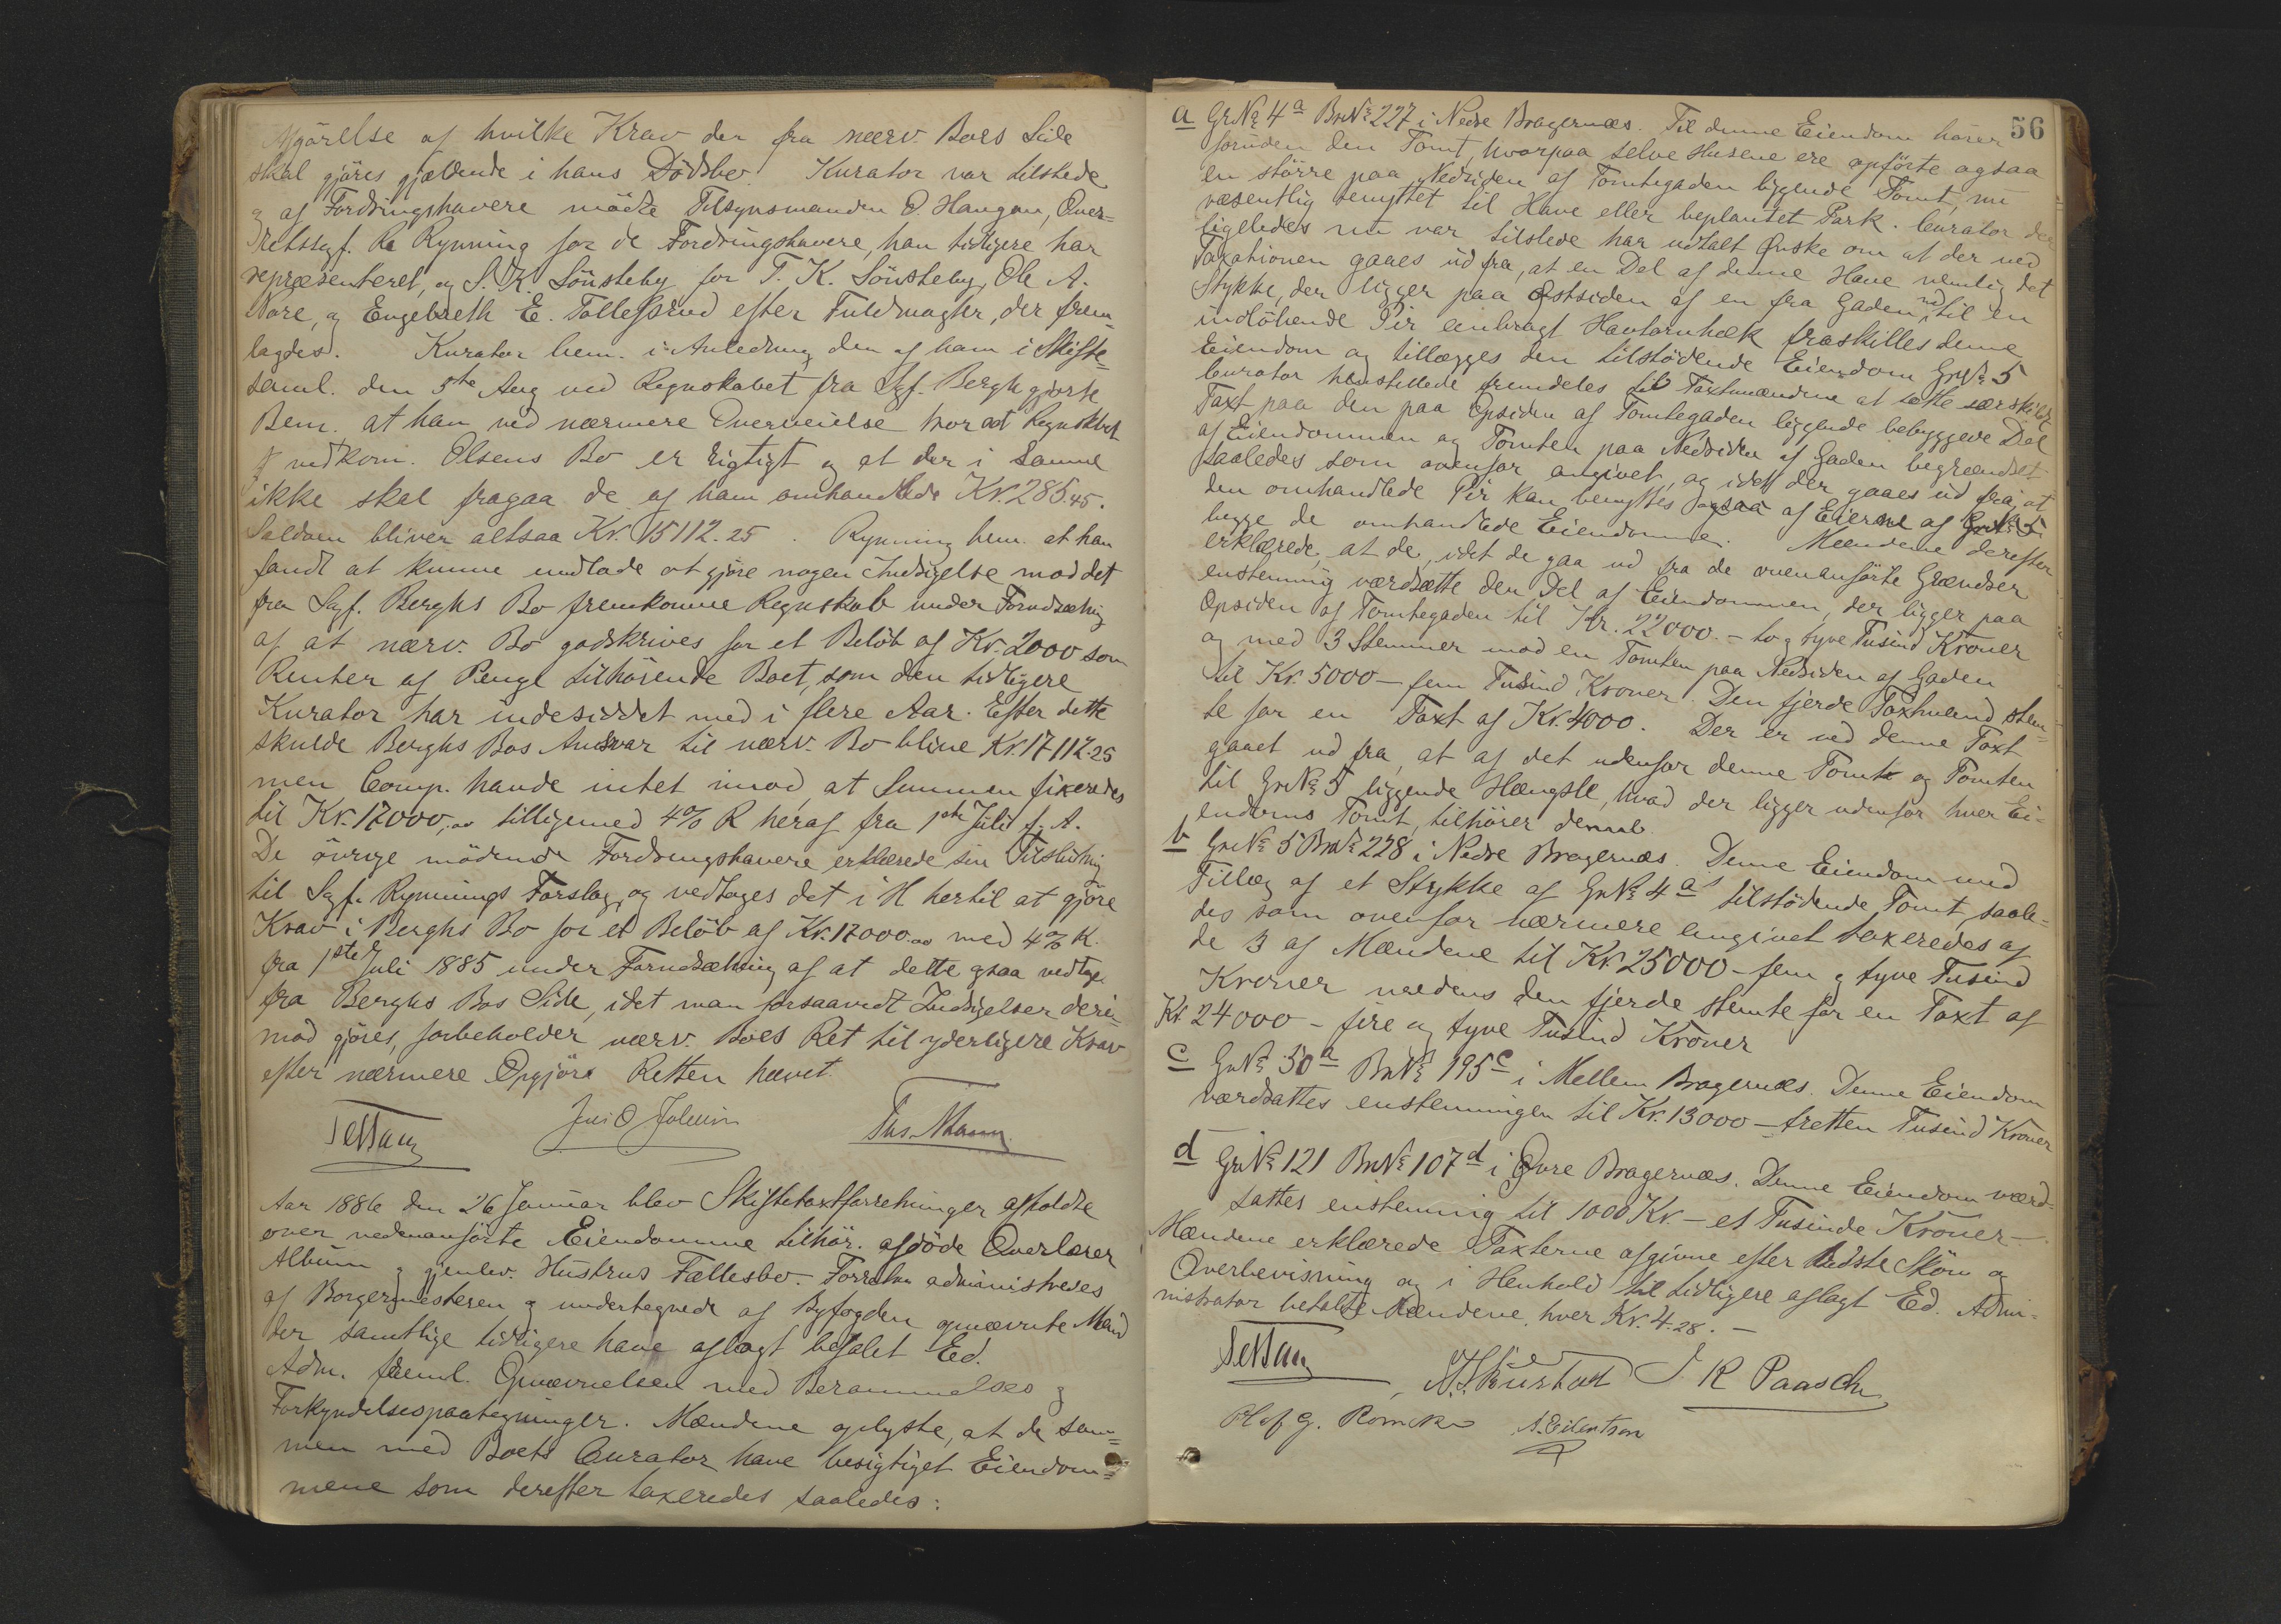 Afgörelse af hvilke Krav der fra nærv. Boes Side
skal gjöres gjældende i hans Dödsbo. Kurator var tilstede
og af Fordringshavere mödte Tilsynsmanden O. Haugan, Over=
retssgf. Rynning for de Fordringshavere, han tidligere har
repræsenteret, og S. K. Sönsteby for T. K. Sönsteby, Ole A.
Nore, og Engebreth E. Tollefsrud efter Fuldmagter, der frem=
lagdes. Kurator bem. i Anledning den af ham i Skifte=
saml. den 5te Aug ved Regnskabet fra Sgf. Bergh gjorte
Bem. at han ved nærmere Overveielse tror at Regnskabet
vedkom. Olsens Bo er rigtigt og at der i Samme
ikke skal fragaa de af ham omhandlede Kr. 285.45.
Saldoen bliver altsaa Kr. 15112.25. Rynning bem. at han
fandt at kunne undlade at gjöre nogen Indsigelse mod det
fra Sgf. Berghs Bo fremkomne Regnskab under Forudsætning
af at nærv. Bo godskrives for et Belöb af Kr. 2000 som
Renter af Penge tilhörende Boet, som den tidligere
Kurator har indesiddet med i flere Aar. Efter dette
skulde Berghs Bos Ansvar til nærv. Bo blive Kr. 17112.25
men Comp. havde intet imod, at Summen fixeredes
til Kr. 17000,00 tilligemed 4% R heraf fra 1ste Juli f. A.
De övrige mödende Fordringshavere erklærede sin Tilslutning
til Sgf. Rynnings Forslag, og vedtoges det i H hertil at gjöre
Krav i Berghs Bo for et Belöb af Kr. 17000.00 med 4% R.
fra 1ste Juli 1885 under Forudsætning af at dette ogsaa vedtages
fra Berghs Bos Side, idet man forsaavidt Indsigelser deri=
mod gjöres, forbeholder nærv. Boes Ret til yderligere Krav
efter nærmere Opgjör. Retten hævet.
Aar 1886 den 26 Januar blev Skiftetaxtforretninger afholdte
over nedenanförte Eiendomme tilhör. afdöde Overlærer
Album og gjenlev. Hustrus Fællesbo. Forretn. administreredes
af Borgermesteren og undertegnede af Byfogden opnævnte Mænd
der samtlige tidligere have aflagt befalet Ed.
Adm. freml. Opnævnelsen med Berammelses og
Forkyndelsespaategninger. Mændene oplyste, at de sam=
men med Boets Curator have besigtiget Eiendom=
mene som derefter taxeredes saaledes:
56
a GrNo 4a BrNo 227 i Nedre Bragernæs. Til denne Eiendom hörer
foruden den Tomt, hvorpaa selve Husene ere opförte ogsaa
en större paa Nedsiden af Tomtegaden liggende Tomt, nu
væsentlig benyttet til Have eller beplantet Park. Curator der
ligeledes nu var tilstede har udtalt Önske om at der ved
Taxationen gaaes ud fra, at en Del af denne Have nemlig det
Stykke, der ligger paa Östsiden af en fra Gaden ned til en
indlöbende Pir anbragt Havtornhæk fraskilles denne
Eiendom og tillægges den tilstödende Eiendom GrNo 5
Curator henstillede fremdeles til Taxtmændene at sætte særskilt
Taxt paa den paa Opsiden af Tomtegaden liggende bebyggede Del
af Eiendommen og Tomten paa Nedsiden af Gaden begrændset
saaledes som ovenfor angivet, og idet der gaaes ud fra, at
den omhandlede Pir kan benyttes ogsaa af Eierne af GrNo 5
begge de omhandlede Eiendomme. Mændene derefter
erklærede, at de, idet de gaa ud fra de ovenanförte Grændser
enstemmig værdsætte den Del af Eiendommen, der ligger paa
Opsiden af Tomtegaden til Kr. 22000. – to og tyve Tusind Kroner
og med 3 Stemmer mod en Tomten paa Nedsiden af Gaden
til Kr. 5000 – fem Tusind Kroner. Den fjerde Taxtmand stem=
te for en Taxt af Kr. 4000. Der er ved denne Taxt
gaaet ud fra, at af det udenfor denne Tomt og Tomten
til GrNo 5 liggende Hængsle, hvad der ligger udenfor hver Ei=
endoms Tomt, tilhörer denne.
b GrNo 5 BrNo 228 i Nedre Bragernæs. Denne Eiendom med
Tillæg af et Stykke af GrNo 4a's tilstödende Tomt, saale=
des som ovenfor nærmere angivet taxeredes af
de 3 af Mændene til Kr 25000 – fem og tyve Tusind
Kroner medens den fjerde stemte for en Taxt af
Kr 24000 – fire og tyve Tusind Kroner
c GrNo 50a BrNo 195c i Mellem Bragernæs. Denne Eiendom
værdsattes enstemmigen til Kr. 13000 – tretten Tusind Kroner
d GrNo 121 BrNo 107d i Övre Bragernæs. Denne Eiendom værd=
sattes enstemmig til 1000 Kr. – et Tusinde Kroner –
Mændene erklærede Taxterne afgivne efter bedste Skön og
Overbevisning og i Henhold til tidligere aflagt Ed. Admi=
nistrator betalte Mændene, hver Kr. 4.28. –
J R Paasch
Olaf G. Romcke A. Eilertsen